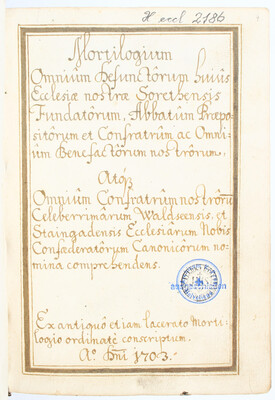 H eccl 2186
Mortilogium
Omnium Defunctorum huius
Ecclesiæ nostræ Sorethensis
Fundatorum, Abbatum Præpo-
sitorum et Confratrum ac Omni-
um Benefactorum nostrorum.
Atqꝫ
Omnium Confratrum nostrorum
Celeberrimarum Waldseensis, et
Staingadensis Ecclesiarum Nobis
Confœderatorum Canonicorum no-
mina comprehendens.
Ex antiquo etiam lacerato Morti-
logio ordinate conscriptum.
Aᵒ. Dni 1703.